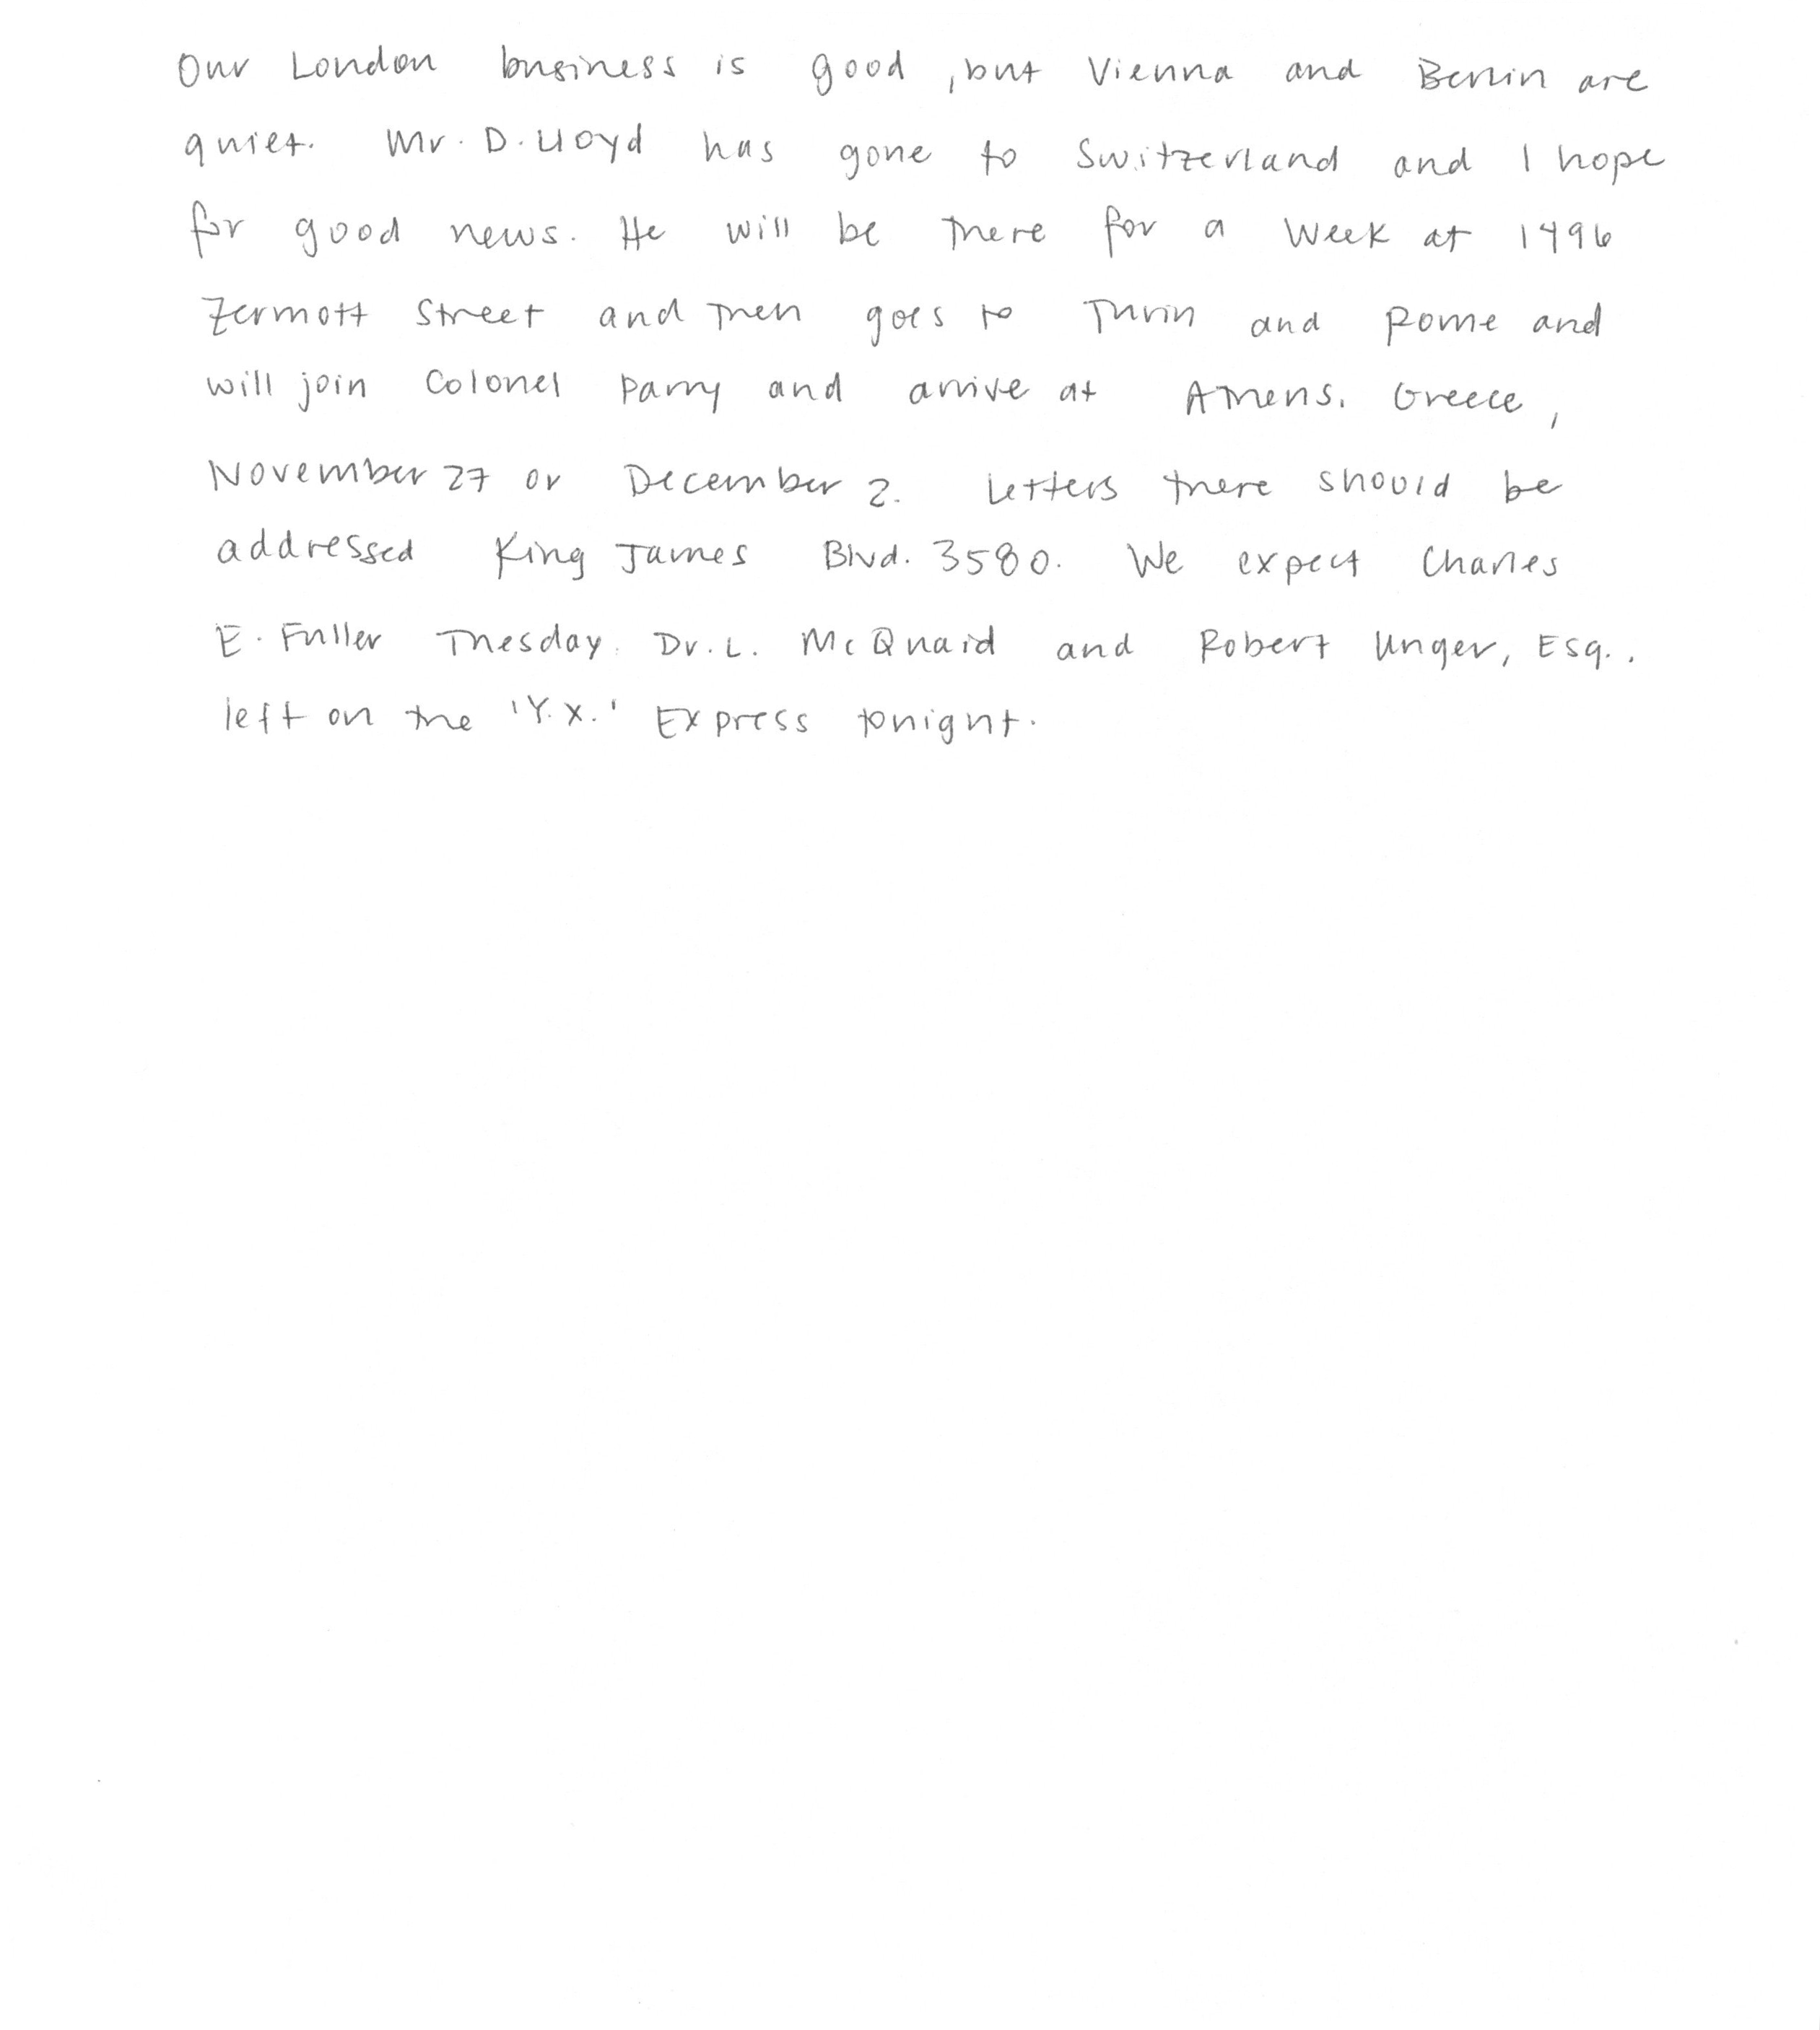 Our London business is good, but Vienna and Berlin are
quiet. Mr. D. Lloyd has gone to Switzerland and I hope
for good news. He will be there for a week at 1496
Zermott Street and then goes to Turin and Rome and
will join Colonel Parry and arrive at Athens, Greece,
November 27 or December 2. Letters there should be
addressed King James Blvd. 3580. We expect Charles
E. Fuller Tuesday. Dr. L. McQuaid and Robert Unger, Esq.,
left on the 'Y.X.' Express tonight.